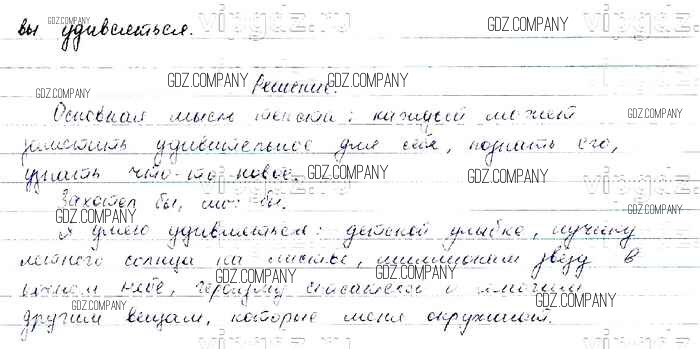 вы удивляться.
Решение.
Основная мысль текста: каждый может
заметить удивительное для себя, познать его,
узнать что-то новое.
Захотел бы, мог бы.
Я умею удивляться: детской улыбке, лучику
летного солнца на листве, миллионам звёзд в
небе, и многим
другим вещам, которые меня окружают.
GDZ.COMPANY
vipgdz.ru